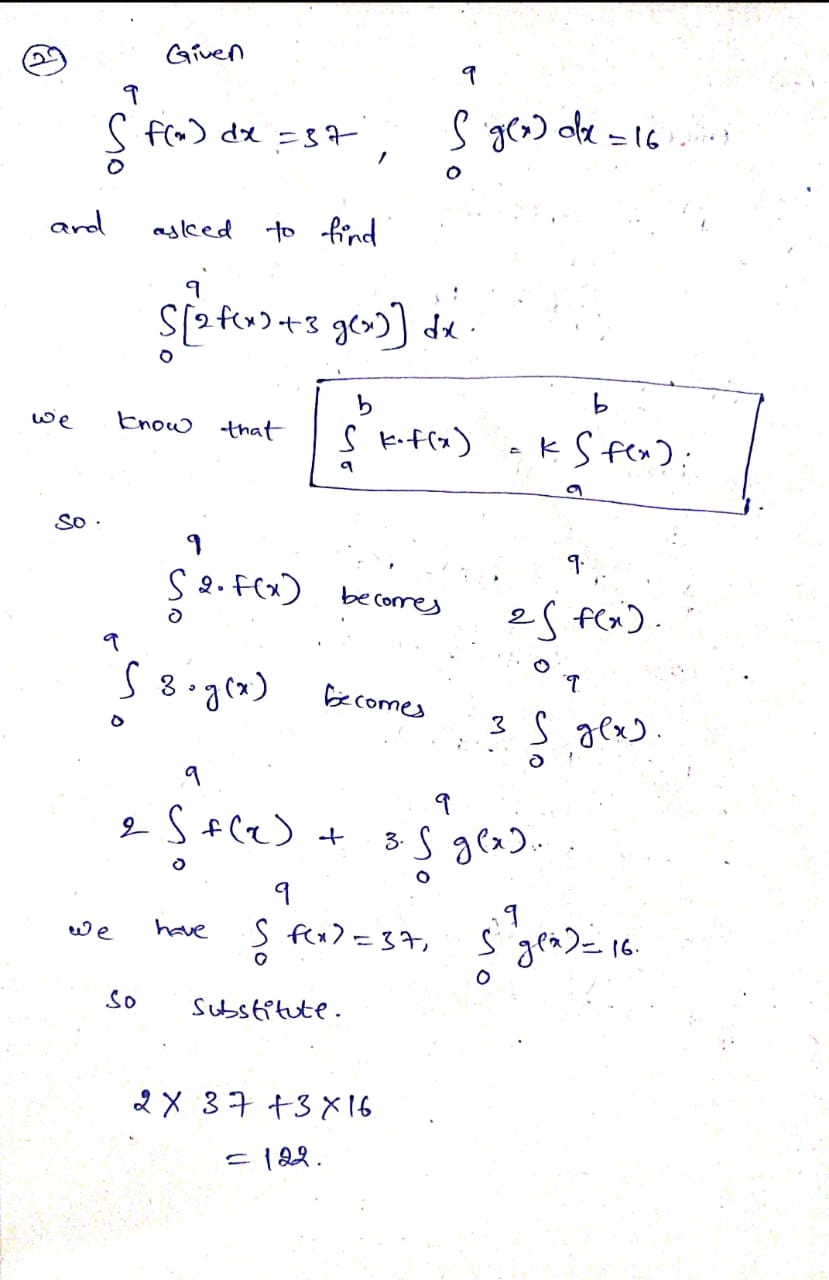 29 Given
∫₀⁹ f(x) dx = 37, ∫₀⁹ g(x) dx = 16
and asked to find
∫₀⁹ [2f(x)+3 g(x)] dx.
we know that ∫ₐᵇ k.f(x) = k ∫ₐᵇ f(x).
so.
∫₀⁹ 2.f(x) becomes 2∫₀⁹ f(x).
∫₀⁹ 3.g(x) becomes 3 ∫₀⁹ g(x).
2 ∫₀⁹ f(x) + 3.∫₀⁹ g(x).
we have ∫₀⁹ f(x) = 37, ∫₀⁹ g(x) = 16.
so substitute.
2 X 37 +3 X 16
= 122.